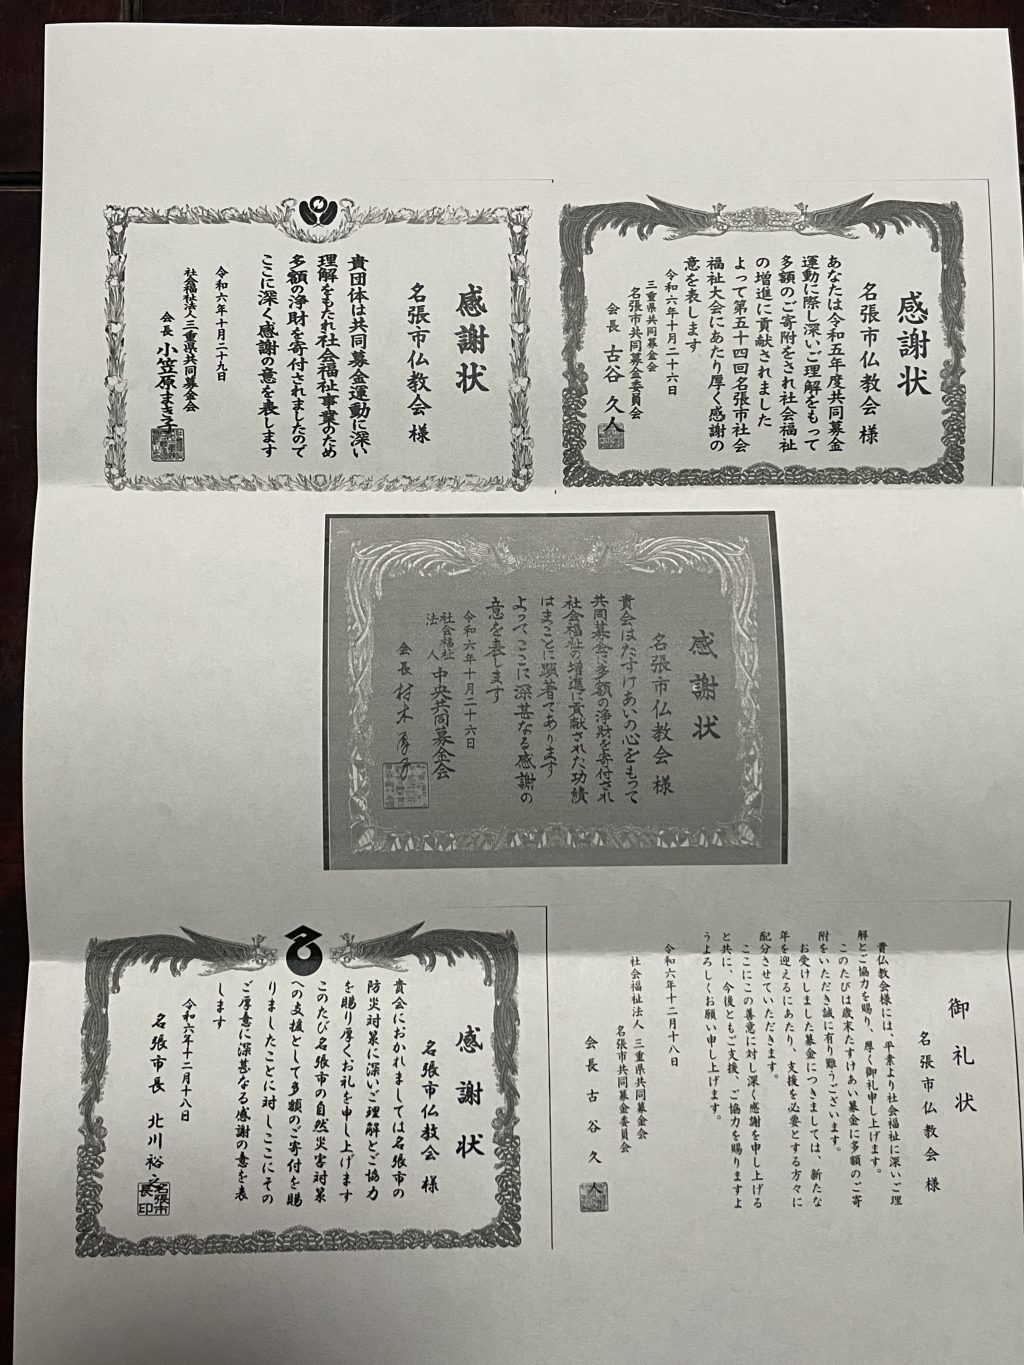 感謝状
名張市仏教会 様
あなたは令和五年度共同募金
運動に際し深いご理解をもって
多額のご寄附をされ社会福祉
の増進に貢献されました
よって第五十四回名張市社会
福祉大会にあたり厚く感謝の
意を表します
令和六年十月二十六日
三重県共同募金会
名張市共同募金委員会
会長 古谷 久人
感謝状
名張市仏教会 様
貴団体は共同募金運動に深い
理解をもたれ社会福祉事業のため
多額の浄財を寄付されましたので
ここに深く感謝の意を表します
令和六年十月二十九日
社会福祉法人三重県共同募金会
会長 小笠原まき子
感謝状
名張市仏教会 様
貴会はたすけあいの心をもって
共同募金に多額の浄財を寄付され
社会福祉の増進に貢献された功績
はまことに顕著であります
よってここに深甚なる感謝の
意を表します
令和六年十月二十六日
社会福祉法人 中央共同募金会
会長 村木厚子
御礼状
名張市仏教会 様
貴仏教会様には、平素より社会福祉に深いご理
解とご協力を賜り、厚く御礼申し上げます。
このたびは歳末たすけあい募金に多額のご寄
附をいただき誠に有り難うございます。
お受けしました募金につきましては、新たな
年を迎えるにあたり、支援を必要とする方々に
配分させていただきます。
ここにこの善意に対し深く感謝を申し上げる
と共に、今後ともご支援、ご協力を賜りますよ
うよろしくお願い申し上げます。
令和六年十二月十八日
社会福祉法人 三重県共同募金会
名張市共同募金委員会
会長 古谷 久人
感謝状
名張市仏教会 様
貴会におかれましては名張市の
防災対策に深いご理解とご協力
を賜り厚くお礼を申し上げます
このたび名張市の自然災害対策
への支援として多額のご寄付を賜
りましたことに対しここにその
ご厚意に深甚なる感謝の意を表
します
令和六年十二月十八日
名張市長 北川裕之
名張市長印